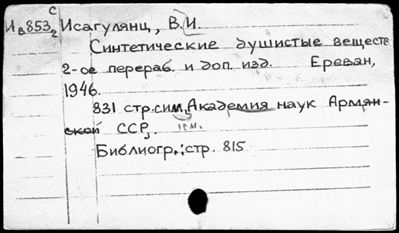 Ив853 с2 Исагулянц, В.И.
Синтетические душистые веществ
2-ое перераб. и доп. изд. Ереван,
1946.
831 стр. сим, Академия наук Армян-
ской ССР,
Библиогр.: стр. 815